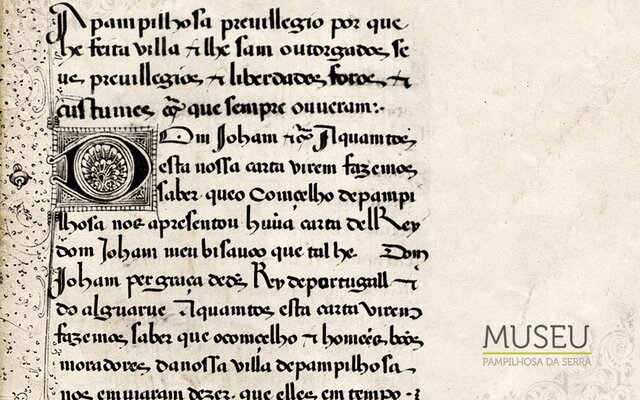 A pampilhosa preuillegio por que
he feita villa & lhe sam outorgados se
us preuillegios & liberdades foros &
custumes q̃ que sempre ouueram:·
Dom Joham &c̃ A quamtos
esta nossa carta virem fazemos
saber que o Comçelho de pampi
lhosa nos apresentou huũa carta dell Rey
dom Joham meu bisauoo que tal he. Dom
Joham per graça de ds̃ Rey de portugall &
do alguarue A quamtos esta carta virem
fazemos saber que o comçelho & homeẽs bõos
moradores da nossa villa de pampilhosa
nos emuiaram dezer. que elles em tempo
MUSEU
PAMPILHOSA DA SERRA